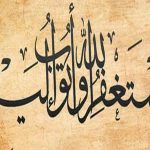 ستغفر الله وأتوب إلي